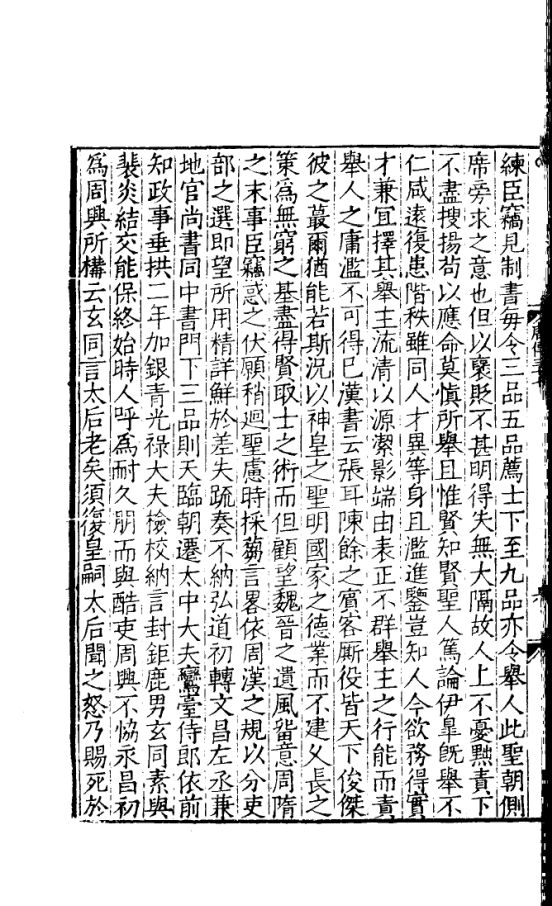 練臣竊見制書每令三品五品薦士下至九品亦令舉人此聖朝側
席旁求之意也但以褒貶不甚明得失無大隔故人上不憂黜責下
不盡搜揚苟以應命莫慎所舉且惟賢知賢聖人篤論伊皐旣舉不
仁咸遠復患階秩雖同人才異等身且濫進鑒豈知人今欲務得實
才兼宜擇其舉主流清以源潔影端由表正不群舉主之行能而責
舉人之庸濫不可得已漢書云張耳陳餘之賓客厮役皆天下俊傑
彼之蕞爾猶能若斯況以神皇之聖明國家之德業而不建乆長之
策爲無窮之基盡得賢取士之術而但顧望魏晉之遺風留意周隋
之末事臣竊惑之伏願稍迴聖慮時採蒭言畧依周漢之規以分吏
部之選即望所用精詳鮮於差失疏奏不納弘道初轉文昌左丞兼
地官尚書同中書門下三品則天臨朝遷太中大夫鸞臺侍郎依前
知政事垂拱二年加銀青光祿大夫檢校納言封鉅鹿男玄同素與
裴炎結交能保終始時人呼爲耐久朋而與酷吏周興不協永昌初
爲周興所構云玄同言太后老矣須復皇嗣太后聞之怒乃賜死於